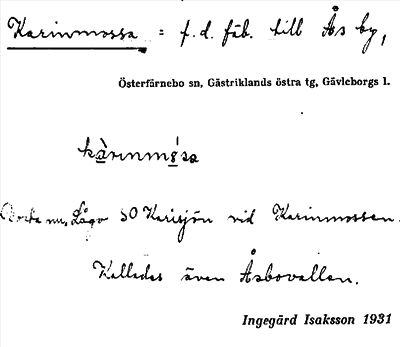 Karinmossa = f.d. fäb. till Ås by,
Österfärnebo sn, Gästriklands östra tg, Gävleborgs l.
kàrınms̀a
Borta nu, Lågo SO Karisjön vid Karinmossen.
Kallades även Åsbovallen.
Ingegärd Isaksson 1931